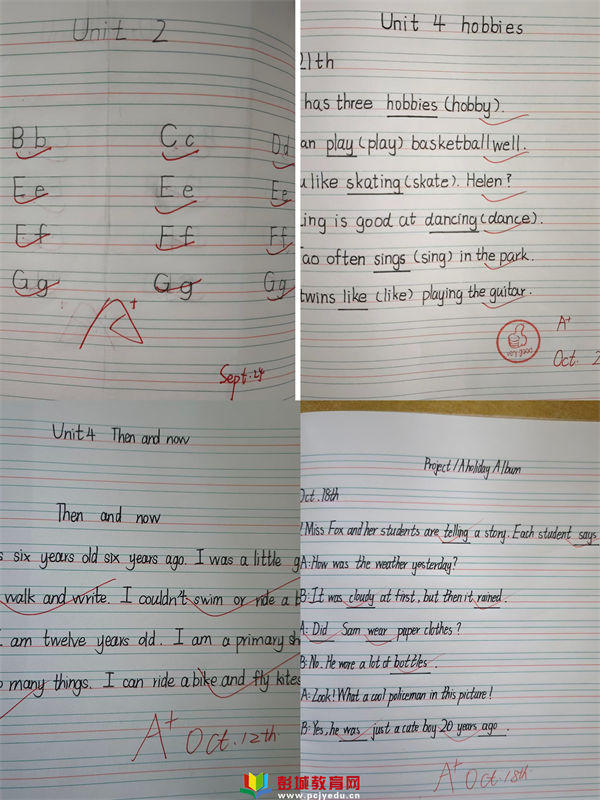 Unit 2
Bb Cc Dd
Ee Ee Ee
Ff Ff Ff
Gg Gg Gg
A+
Sept. 24
Unit 4 hobbies
21th
has three hobbies (hobby).
an play (play) basketball well.
u like skating (skate). Helen?
ing is good at dancing (dance).
Tao often sings (sing) in the park.
twins like (like) playing the guitar.
very good
A+
Oct. 2
Unit 4 Then and now
Then and now
s six years old six years ago. I was a little g
walk and write. I couldn't swim or ride a b
am twelve years old. I am a primary sh
o many things. I can ride a bike and fly kites
A+ Oct. 12th.
Project 1 A holiday Album
Oct. 18th
! Miss Fox and her students are telling a story. Each student says
A: How was the weather yesterday?
B: It was cloudy at first, but then it rained.
A: Did Sam wear paper clothes?
B: No. He wore a lot of bottles.
A: Look! What a cool policeman in this picture!
B: Yes, he was just a cute boy 20 years ago.
A+ Oct. 18th.
彭城教育网
www.pcjyedu.cn